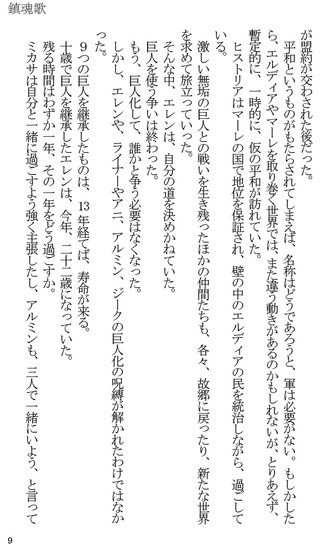 鎮魂歌
が盟約が交わされた後だった。
　平和というものがもたらされてしまえば、名称はどうであろうと、軍は必要がない。もしかした
ら、エルディアやマーレを取り巻く世界では、また違う動きがあるのかもしれないが、とりあえず、
暫定的に、一時的に、仮の平和が訪れていた。
　ヒストリアはマーレの国で地位を保証され、壁の中のエルディアの民を統治しながら、過ごして
いる。
　激しい無垢の巨人との戦いを生き残ったほかの仲間たちも、各々、故郷に戻ったり、新たな世界
を求めて旅立っていった。
　そんな中、エレンは、自分の道を決めかねていた。
　巨人を使う争いは終わった。
　もう、巨人化して、誰かと争う必要はなくなった。
　しかし、エレンや、ライナーやアニ、アルミン、ジークの巨人化の呪縛が解かれたわけではなか
った。
　９つの巨人を継承したものは、13年経では、寿命が来る。
　十歳で巨人を継承したエレンは、今年、二十二歳になっていた。
　残る時間はわずか一年、その一年をどう過ごすか。
　ミカサは自分と一緒に過ごすよう強く主張したし、アルミンも、三人で一緒にいよう、と言って
9